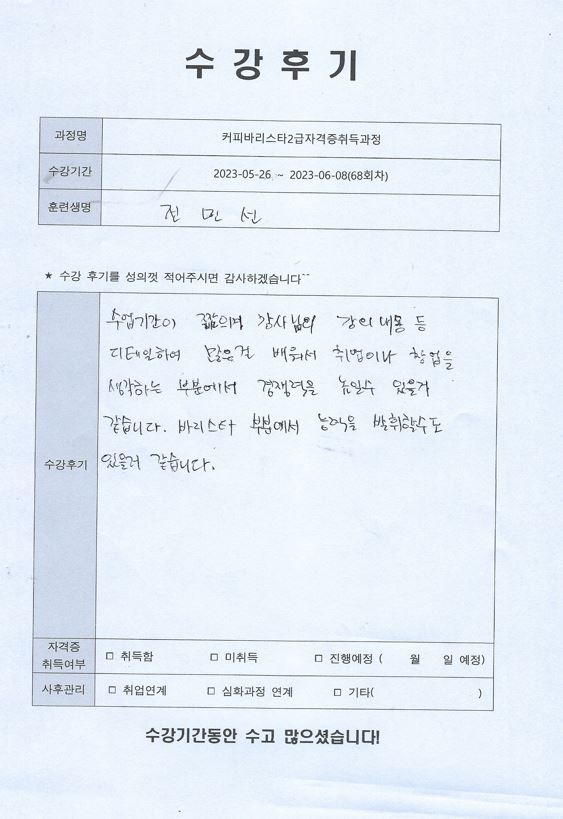 수강후기
과정명 커피바리스타2급자격증취득과정
수강기간 2023-05-26 ~ 2023-06-08(68회차)
훈련생명 진민선
★ 수강 후기를 성의껏 적어주시면 감사하겠습니다~~
수강후기
수업기간이 짧으며 강사님의 강의 내용 등
디테일하여 많은걸 배워서 취업이나 창업을
생각하는 부분에서 경쟁력을 높일수 있을거
같습니다. 바리스타 부분에서 능력을 발휘할수도
있을거 같습니다.
자격증
취득여부 □ 취득함 □ 미취득 □ 진행예정 ( 월 일 예정)
사후관리 □ 취업연계 □ 심화과정 연계 □ 기타( )
수강기간동안 수고 많으셨습니다!